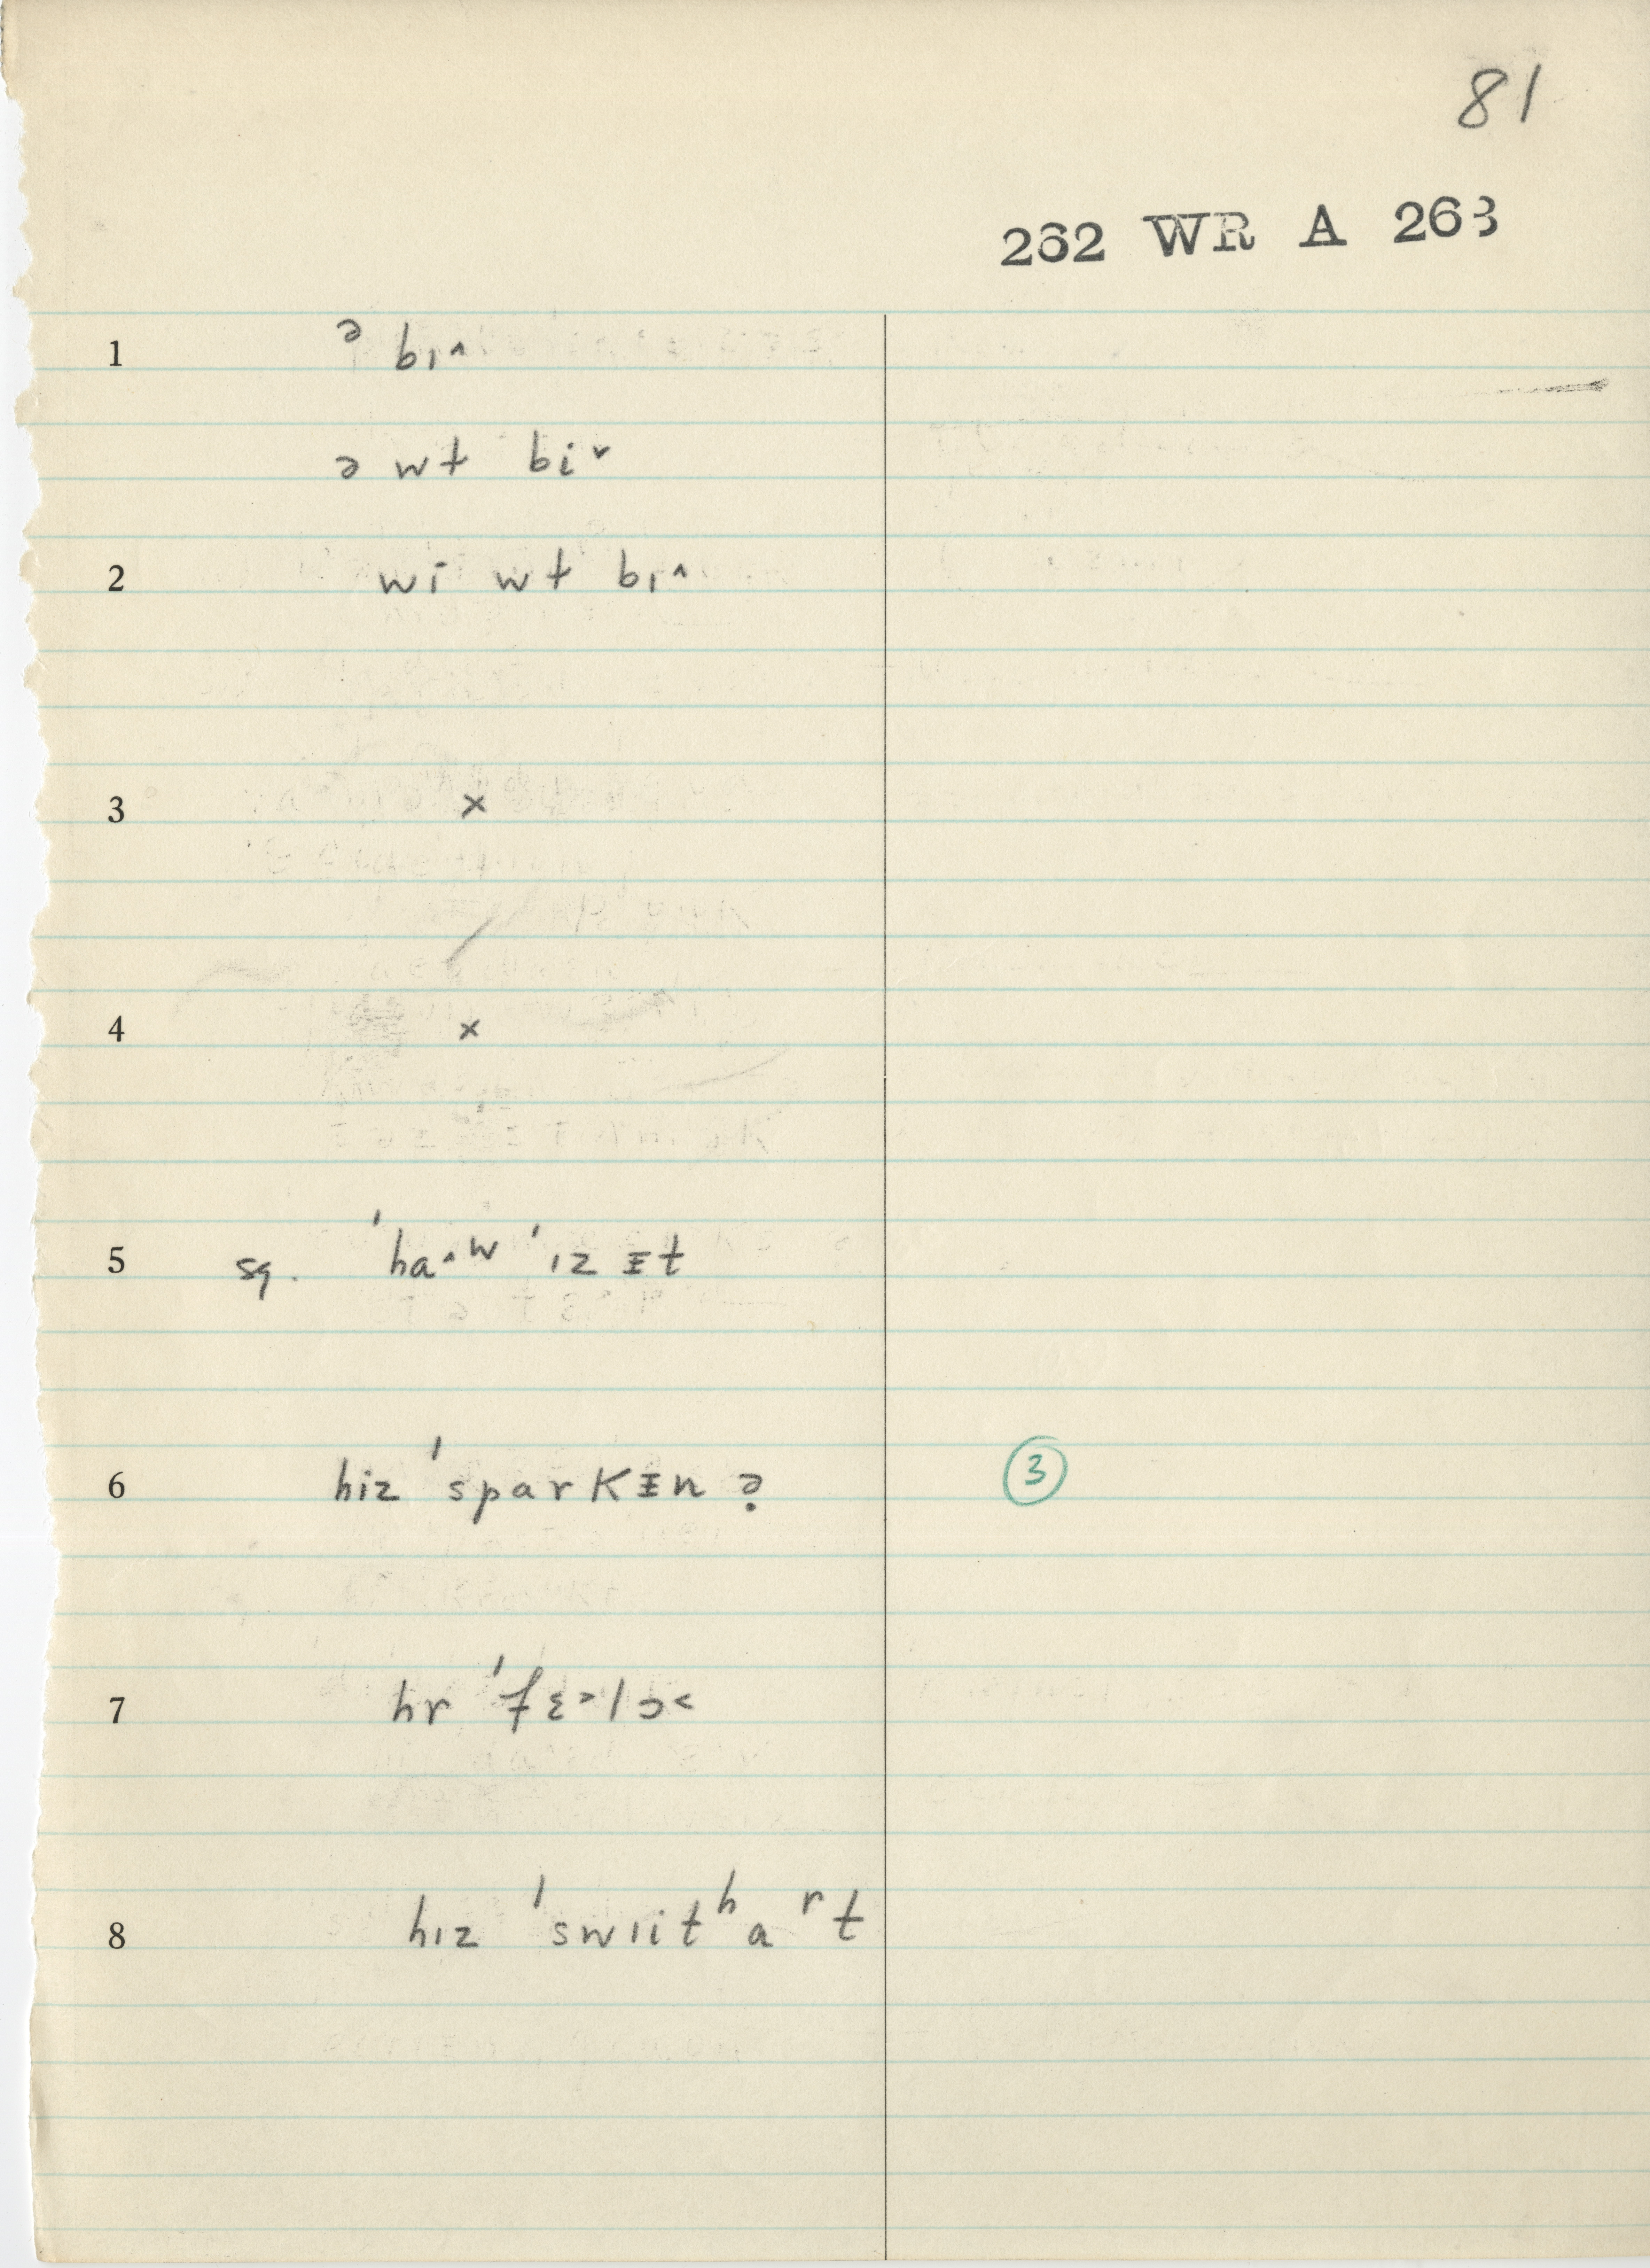 81
262 WR A 263
1 ᵊ bɪ˄
ə wt bi˅
2 wi wt bɪ˄
3 ×
4 ×
5 sq. ˈha˄ʷ ˈɪz ᵻt
6 hiz ˈsparkᵻn ? 3
7 hr ˈfɛ˃lɔ˂
8 hɪz ˈswɪitʰaʳt